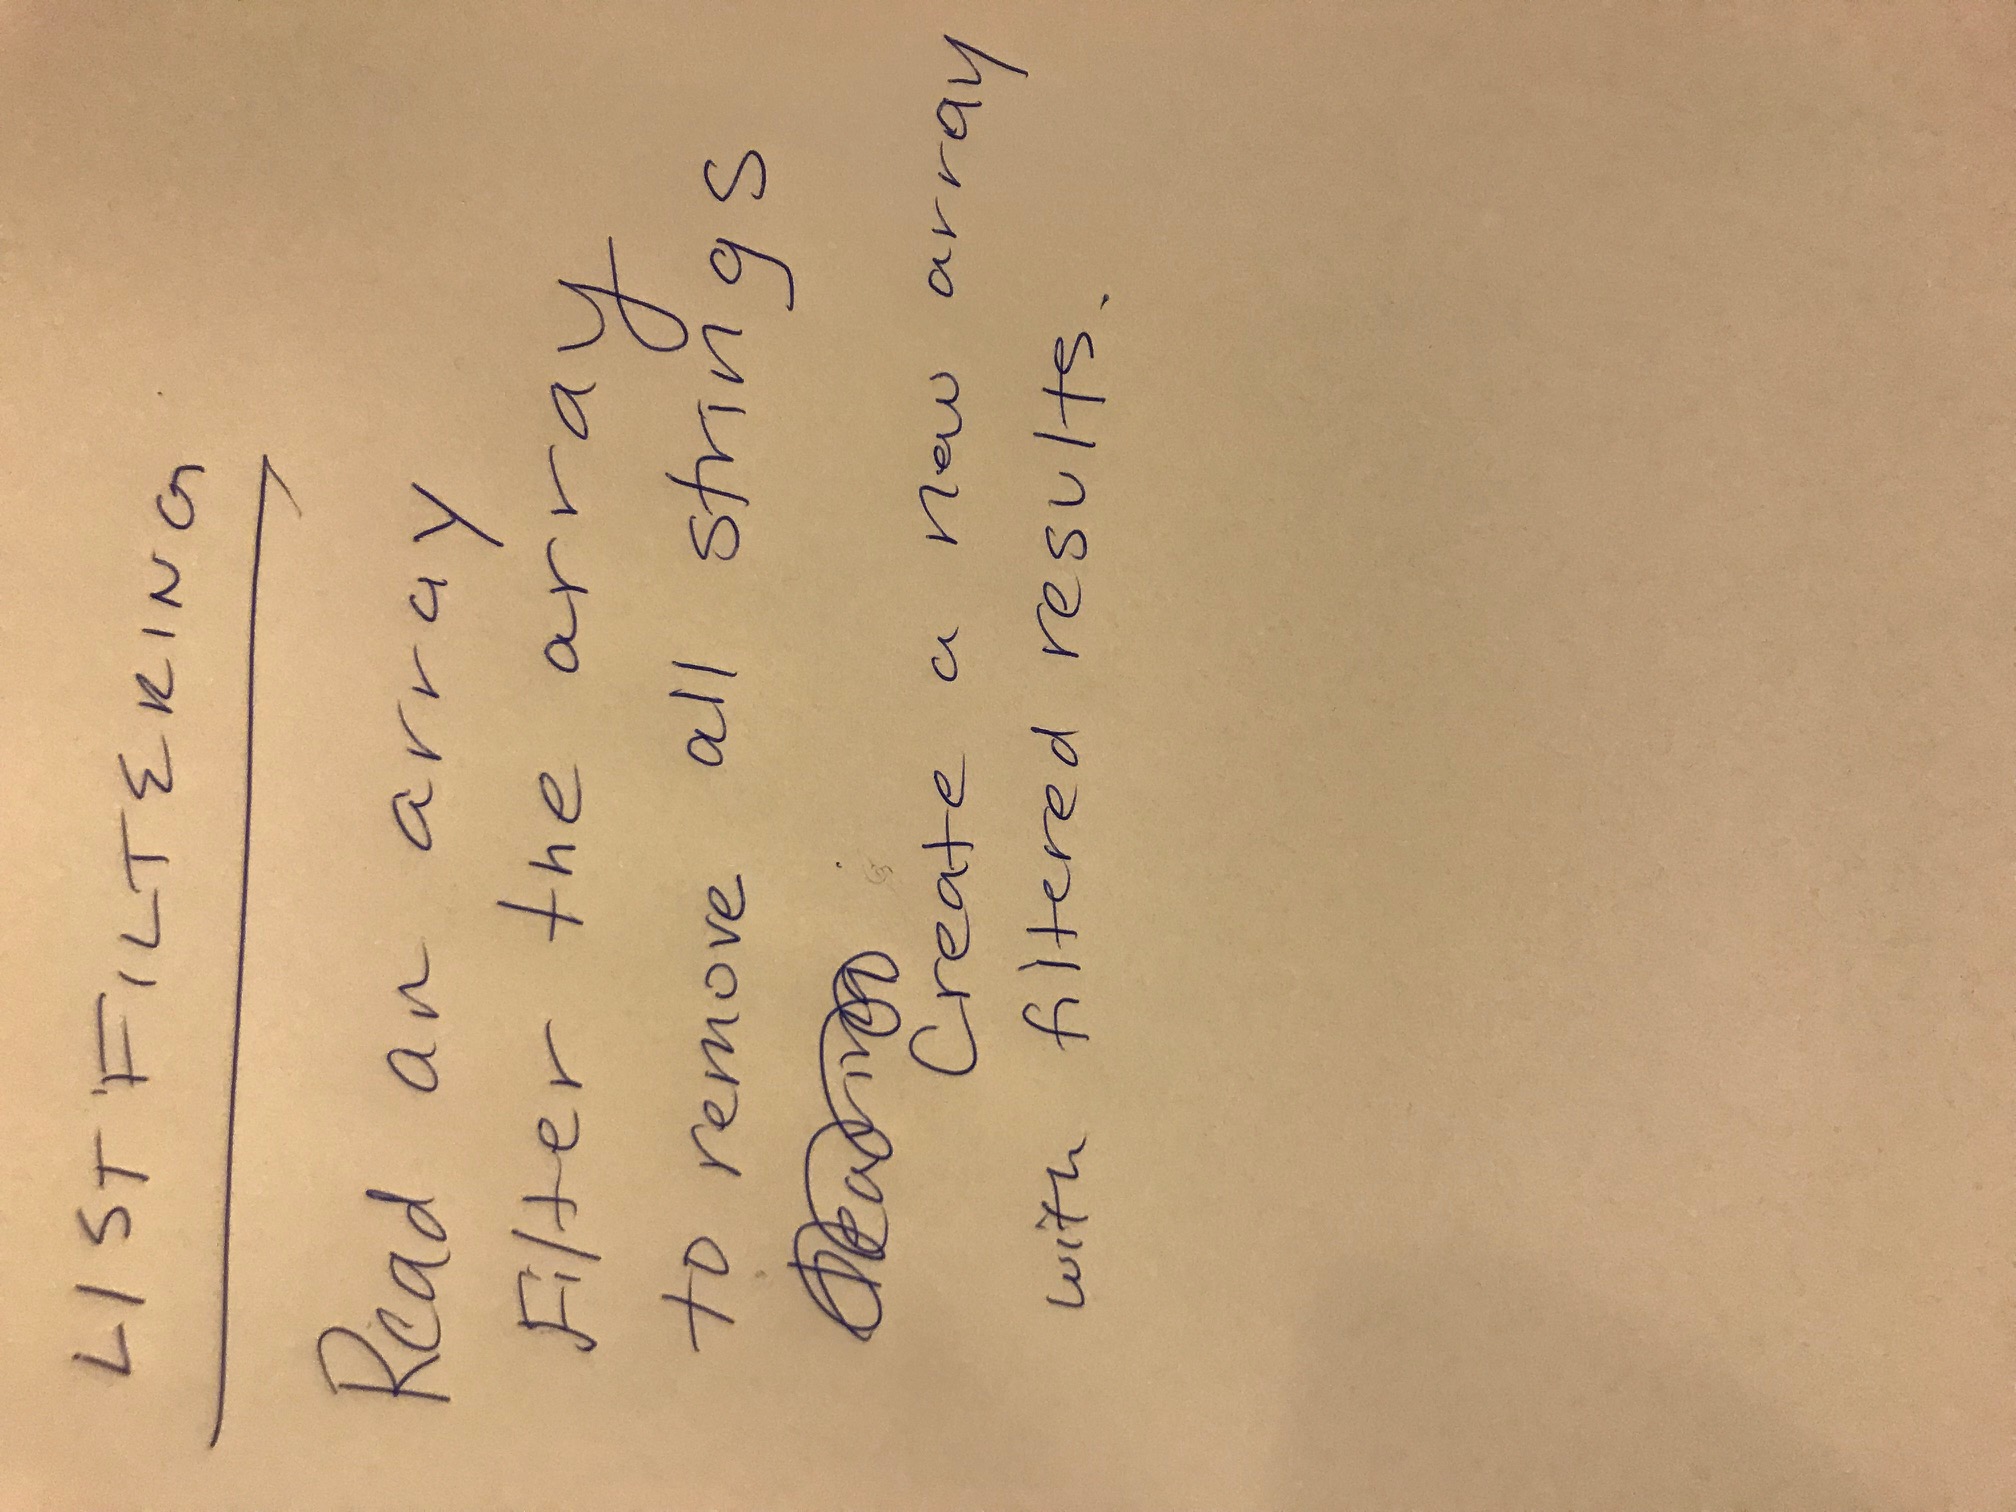 LIST FILTERING
Read an array
Filter the array
to remove all strings
Create a new array
with filtered results.